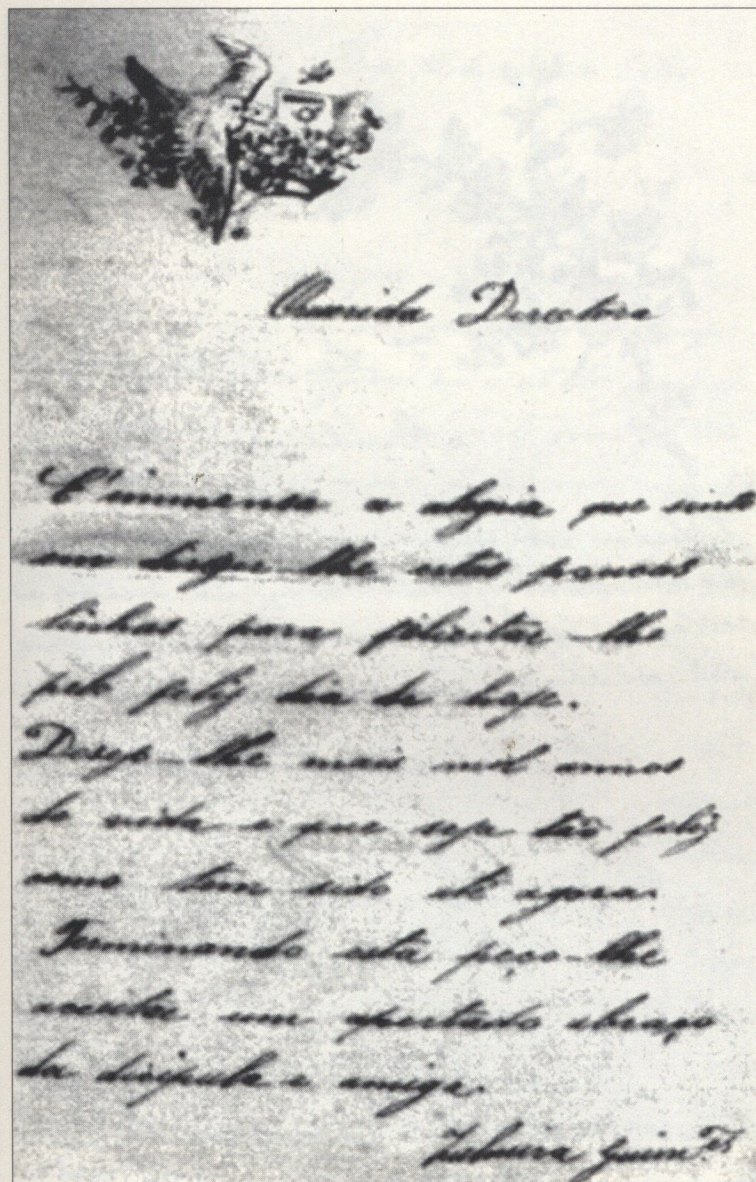 Querida Directora
É immensa a alegria que sinto
em dirigir lhe estas poucas
linhas para felicitar-lhe
pelo feliz dia de hoje.
Desejo-lhe mais mil annos
de vida e que seja tão feliz
como tem sido até agora.
Terminando esta peço-lhe
acceitar um apertado abraço
da discipula e amiga.
Guim.es